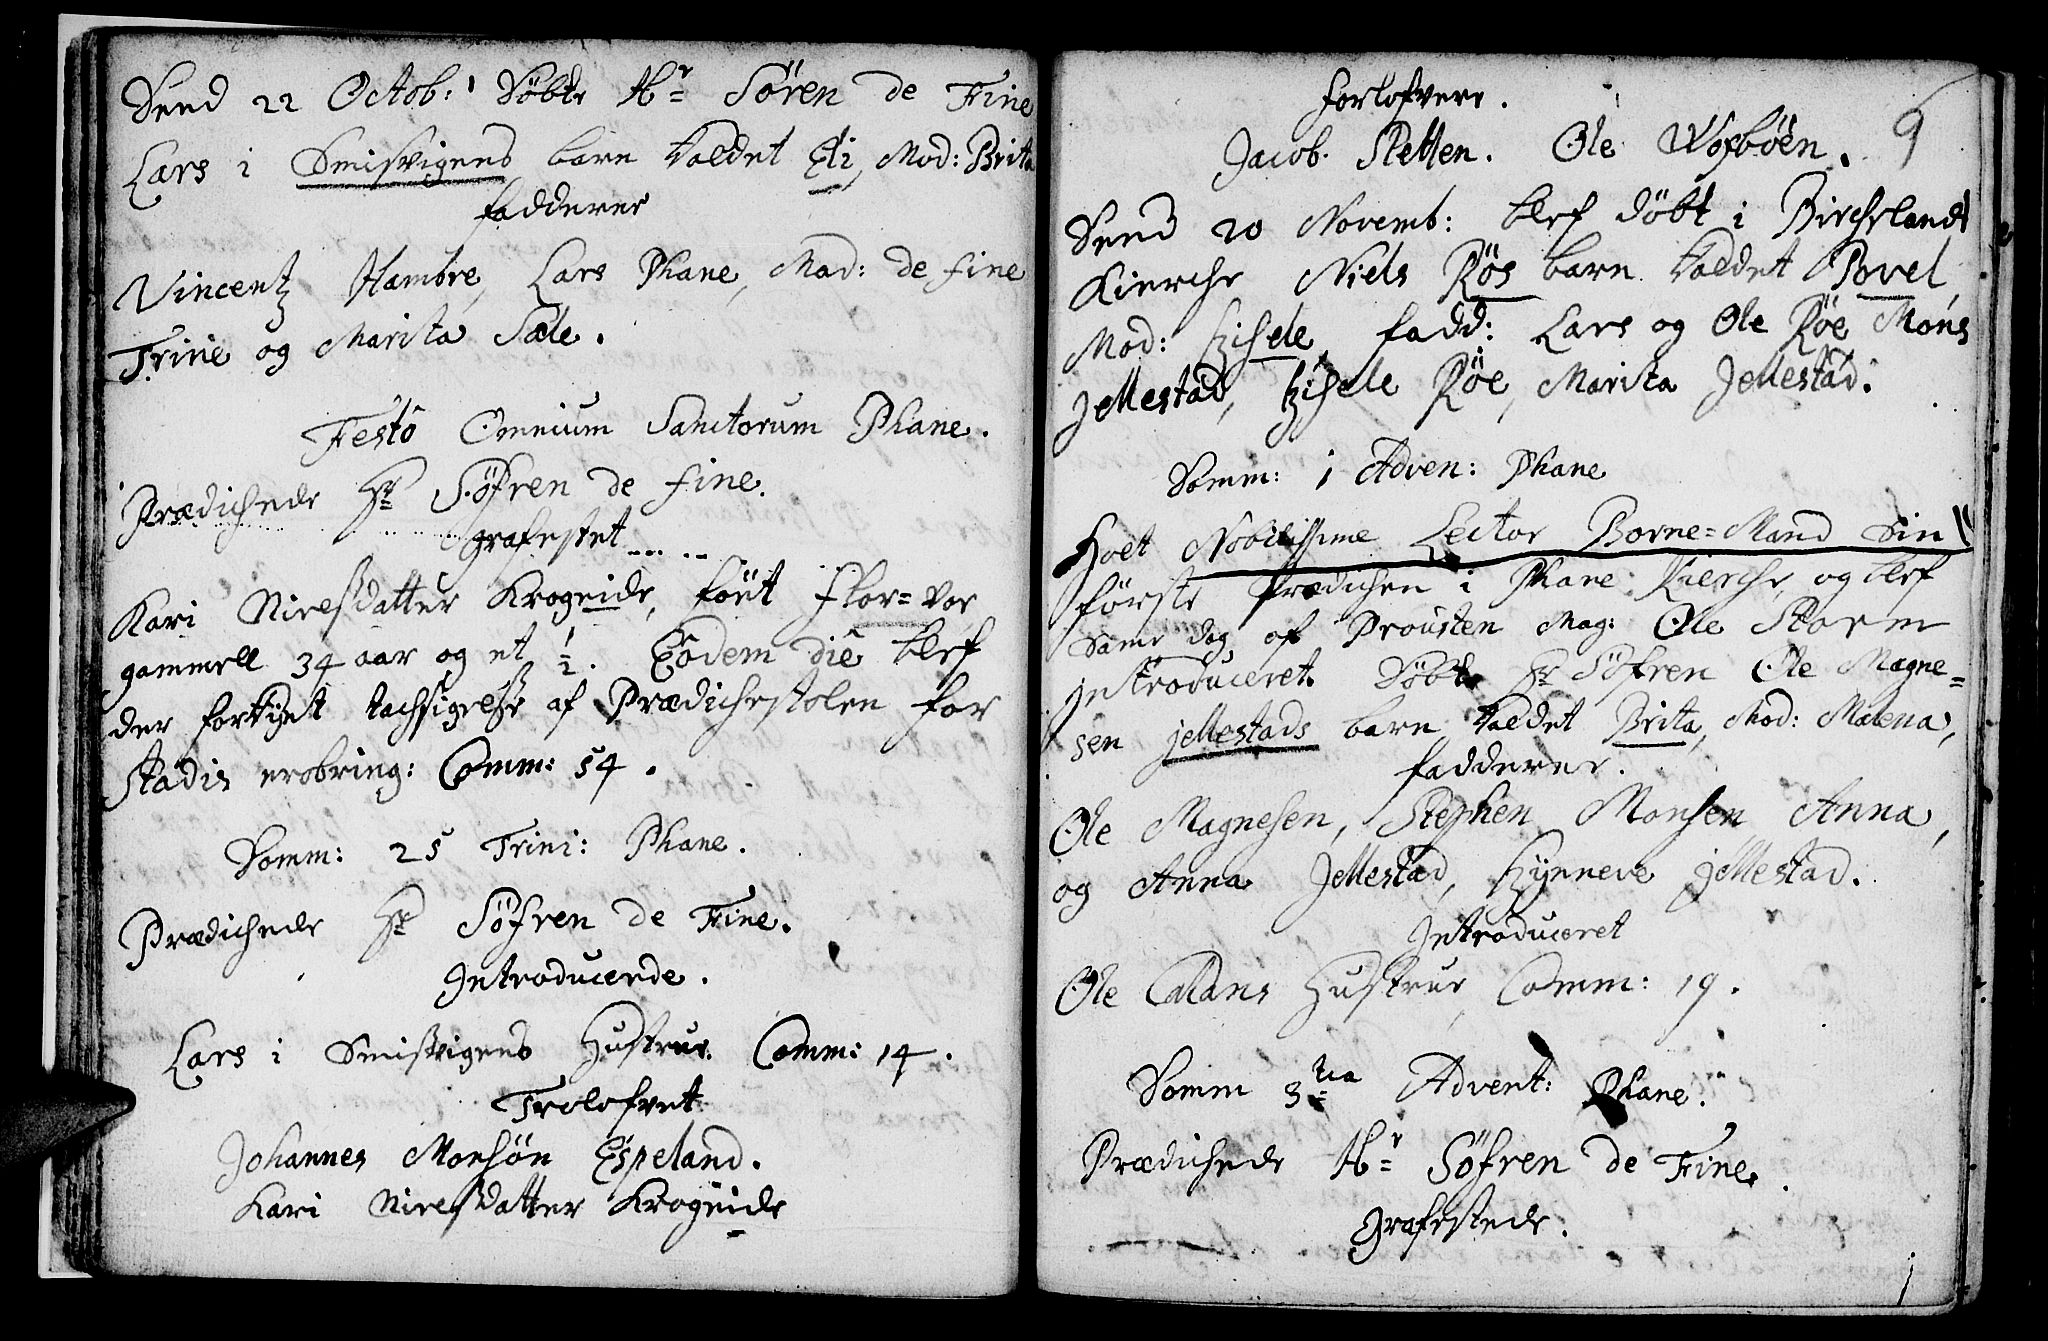 Dend 22 Octob: Döbte Hr Sören de Fine
Lars i Smisvigens barn kaldet Eli, Mod: Brita
fadderne
Vincentz Hambre, Lars Phane, Mad: de fine
Trine og Marita Sæle.
Festo Omnium Sanctorum Phane.
Prædichede Hr Söfren de fine.
grafestet
Kari Nielsdatter Krogeide, föet
gammell 34 aar og et 1/2. Eodem die blef
der forkynt tachsigelse af Prædichestolen for
Stadis erobring: Comm: 54.
Domm: 25 Trini: Phane.
Prædichede Hr Söfren de Fine.
Introducerede.
Lars i Smisvigens Hustrue. Comm: 14.
Trolofvet
Johannes Monsön Espeland.
Kari Nielsdatter Krogeide
forlofvere.
Jacob Sletten. Ole Wosböen.
9
Dend 20 Novemb: blef döbt i Bircheland
Kierche Niels Röes barn kaldet Povel,
Mod: Gisele fadd: Lars og Ole Röe Mons
Jellestad, Gisele Röe, Marita Jellestad.
Domm: 1 Adven: Phane
Holt Nobilissime Lector Borne=Mand sin
förste Prædichen i Phane Kierche, og blef
Same dag af Prousten Mag: Ole Storm
introduceret. Döbte Hr Söfren Ole Magne=
sen jellestads barn kaldet Brita, Mod: Malena,
fadderne.
Ole Magnesen, Stephen Monsen, Anna,
og Anna Jellestad, Synneve jellestad.
Introduceret
Ole Calans Hustrue, Comm: 19.
Domm 3tia Advent: Phane.
Prædichede Hr Söfren de Fine.
Grafestede.